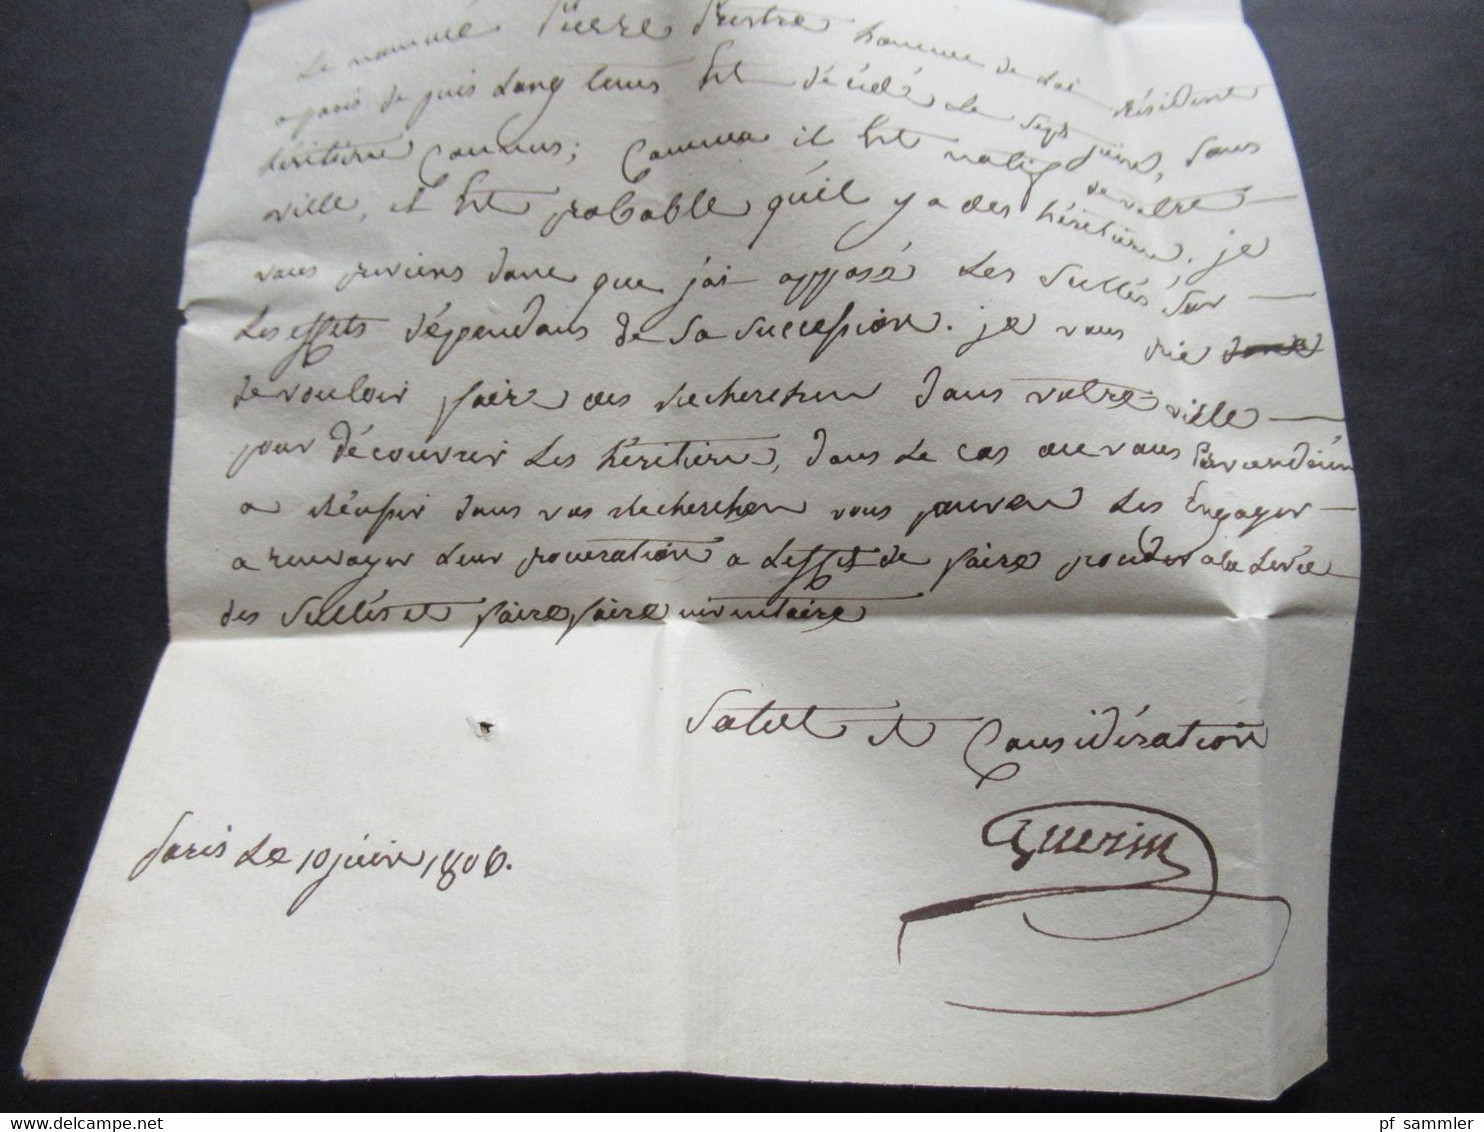 Le nommé Pierre homme de Loi résident
a paris de puis Long tems Est décédé Le sept juin, sans
héritiers Connus; Comme il Est natif de votre
ville, il Est probable qu'il y a des héritiers. je
vous previens donc que j'ai apposé Les Scellés sur
Les effets dépendans de Sa Succession. je vous prie
de vouloir faire des recherches dans votre ville
pour découvrir Les héritiers, dans Le cas ou vous
a réussir dans vos recherches vous pouvez Les Engager
a renvoyer Leur procuration a Leffet de faire procéder a la Levée
des Scellés et faire faire inventaire
Salut et Considération
Guerin
paris Le 10 juin 1806.
pf sammler